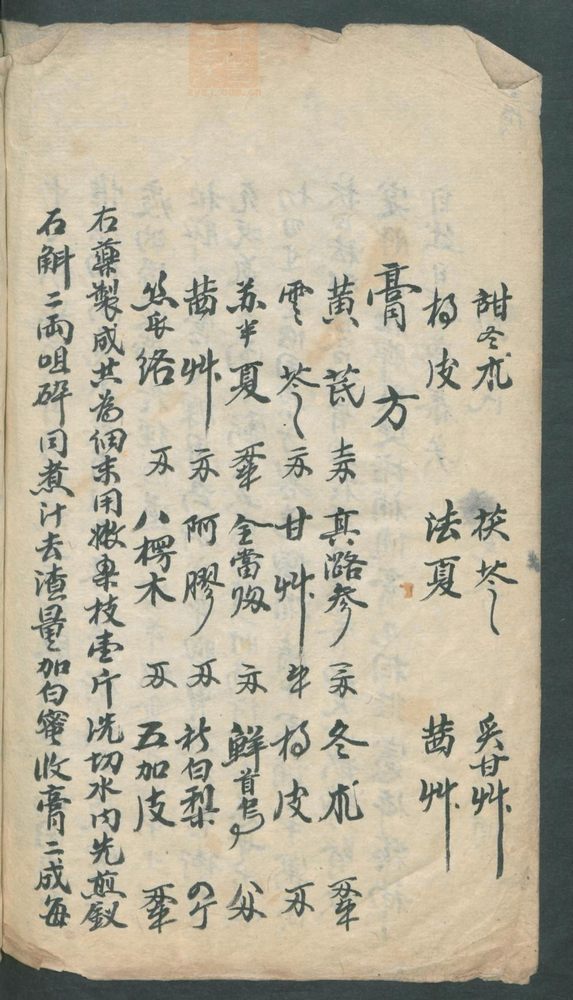 甜冬朮 茯苓 炙甘艸
橘皮 法夏 茜艸
膏方
黄芪 真潞參 冬朮
雲苓 甘艸 橘皮
苏半夏 全當歸 鮮首烏
茜艸 阿膠 秋白梨
絲瓜絡 八楞木 五加皮
右藥製成共為細末用嫩桑枝壹斤洗切水内先煎釵
石斛二兩咀碎同煮汁去渣量加白蜜收膏二成每